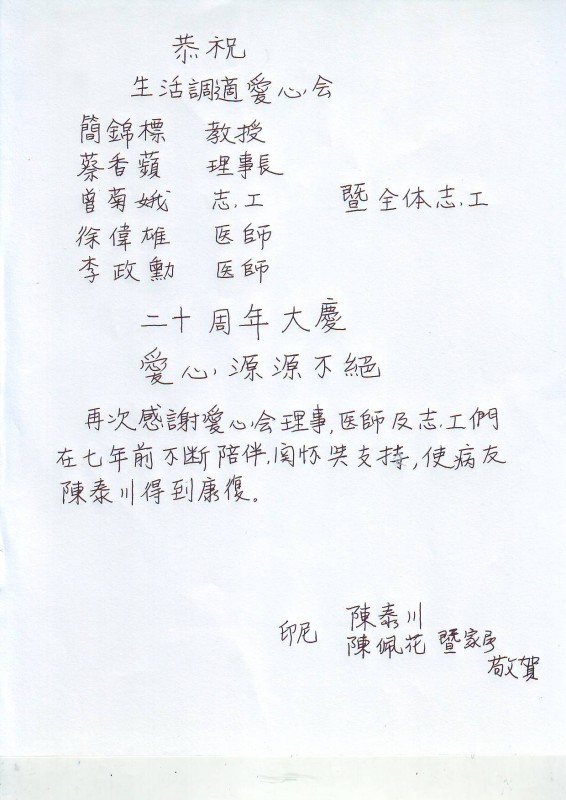 恭祝
生活調適愛心会
簡錦標 教授
蔡香蘋 理事長
曾菊娥 志工 暨全体志工
徐偉雄 医師
李政勳 医師
二十周年大慶
愛心源源不絕
再次感謝愛心会理事,医師及志工們
在七年前不断陪伴,関怀与支持,使病友
陳泰川得到康復。
印尼 陳泰川
陳佩花 暨家
敬賀